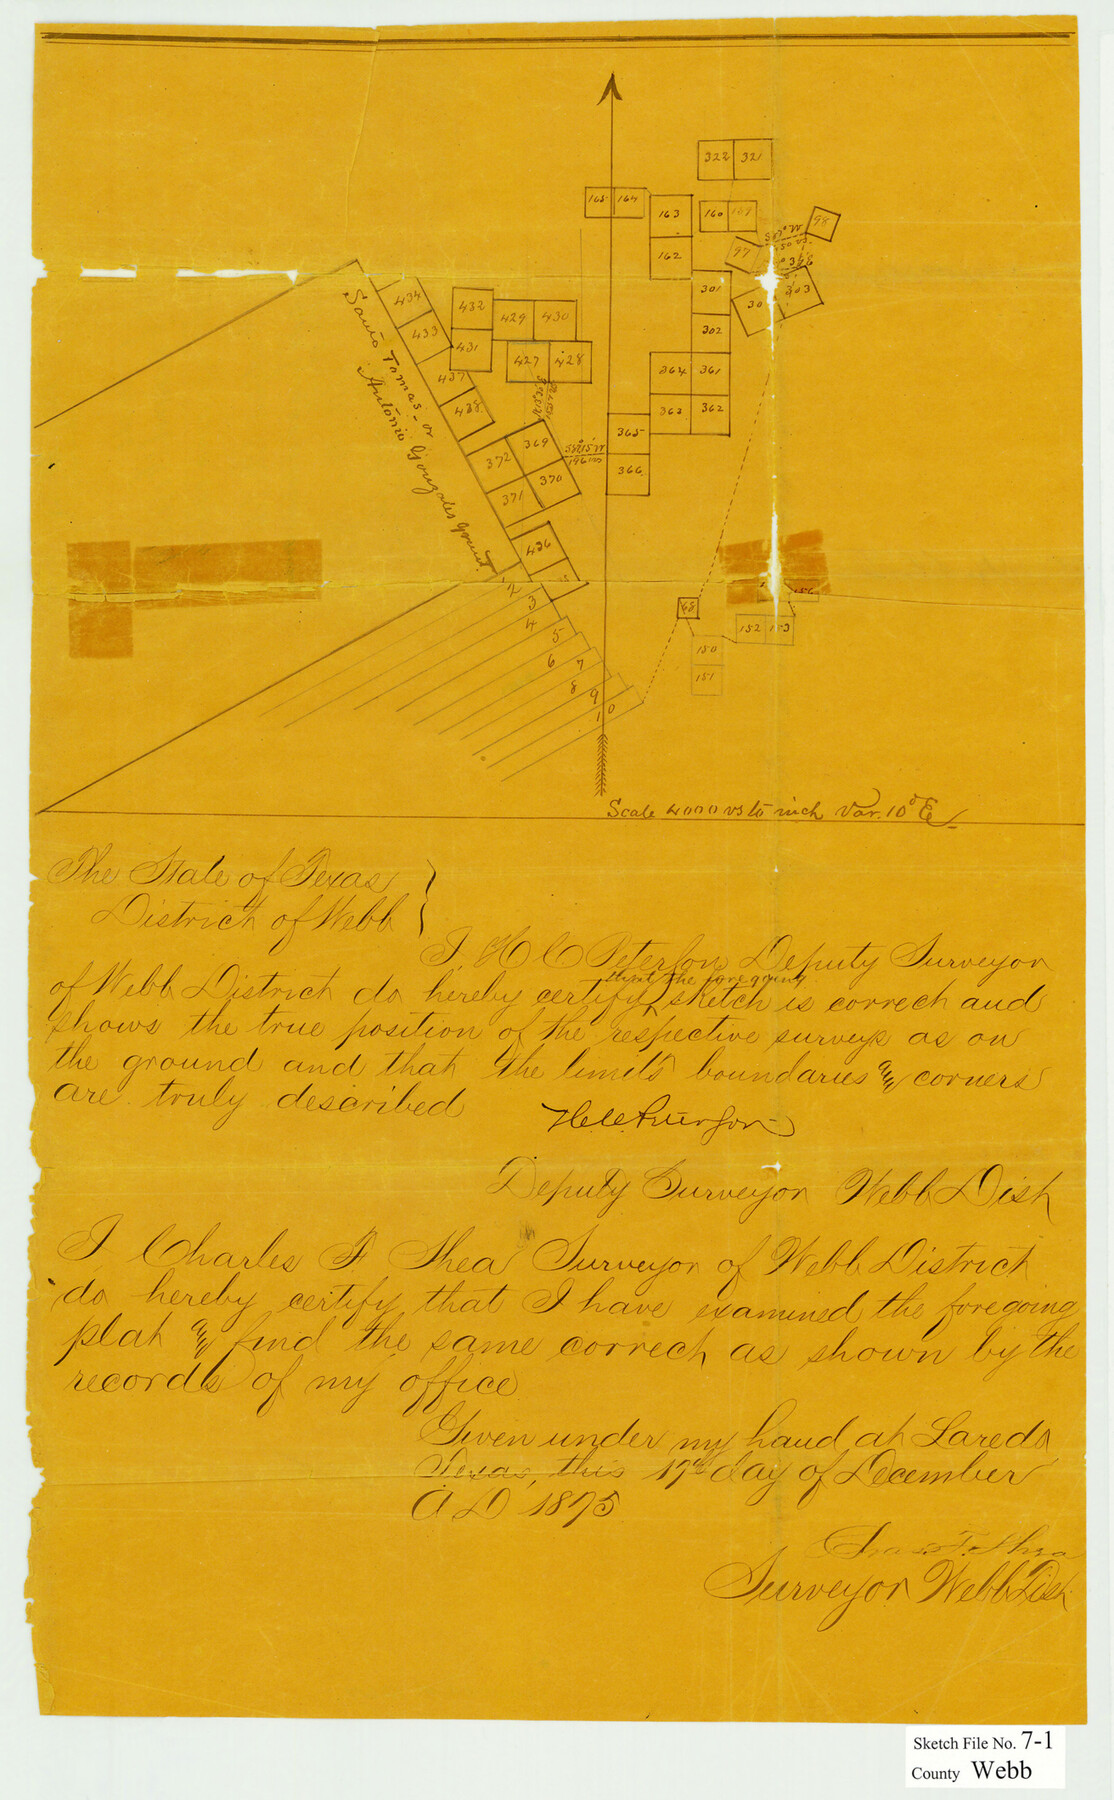 322 321
165 164
163 160 159 98
S 67° W
50 vs.
162 97
301
303
434 432
429 430
302
433
431
427 428
364 361
437
438
363 362
Santo Tomas - or
Antonio Gonzales grant.
369
365
196 vs
372
370
366
371
436
1
2
3
68
4
152 153
5
150
6
7
151
8
9
10
Scale 4000 vs to inch Var. 10° E
The State of Texas }
District of Webb }
I, H C Peterson Deputy Surveyor
that the foregoing
of Webb District do hereby certify sketch is correct and
shows the true position of the respective surveys as on
the ground and that the limits boundaries & corners
are truly described
Deputy Surveyor Webb Dist
I, Charles F Shea Surveyor of Webb District
do hereby certify that I have examined the foregoing
plat & find the same correct, as shown by the
records of my office
Given under my hand at Laredo
Texas, this 17th day of December
A D 1875
Chas. F. Shea
Surveyor Webb Dist.
Sketch File No. 7-1
County Webb